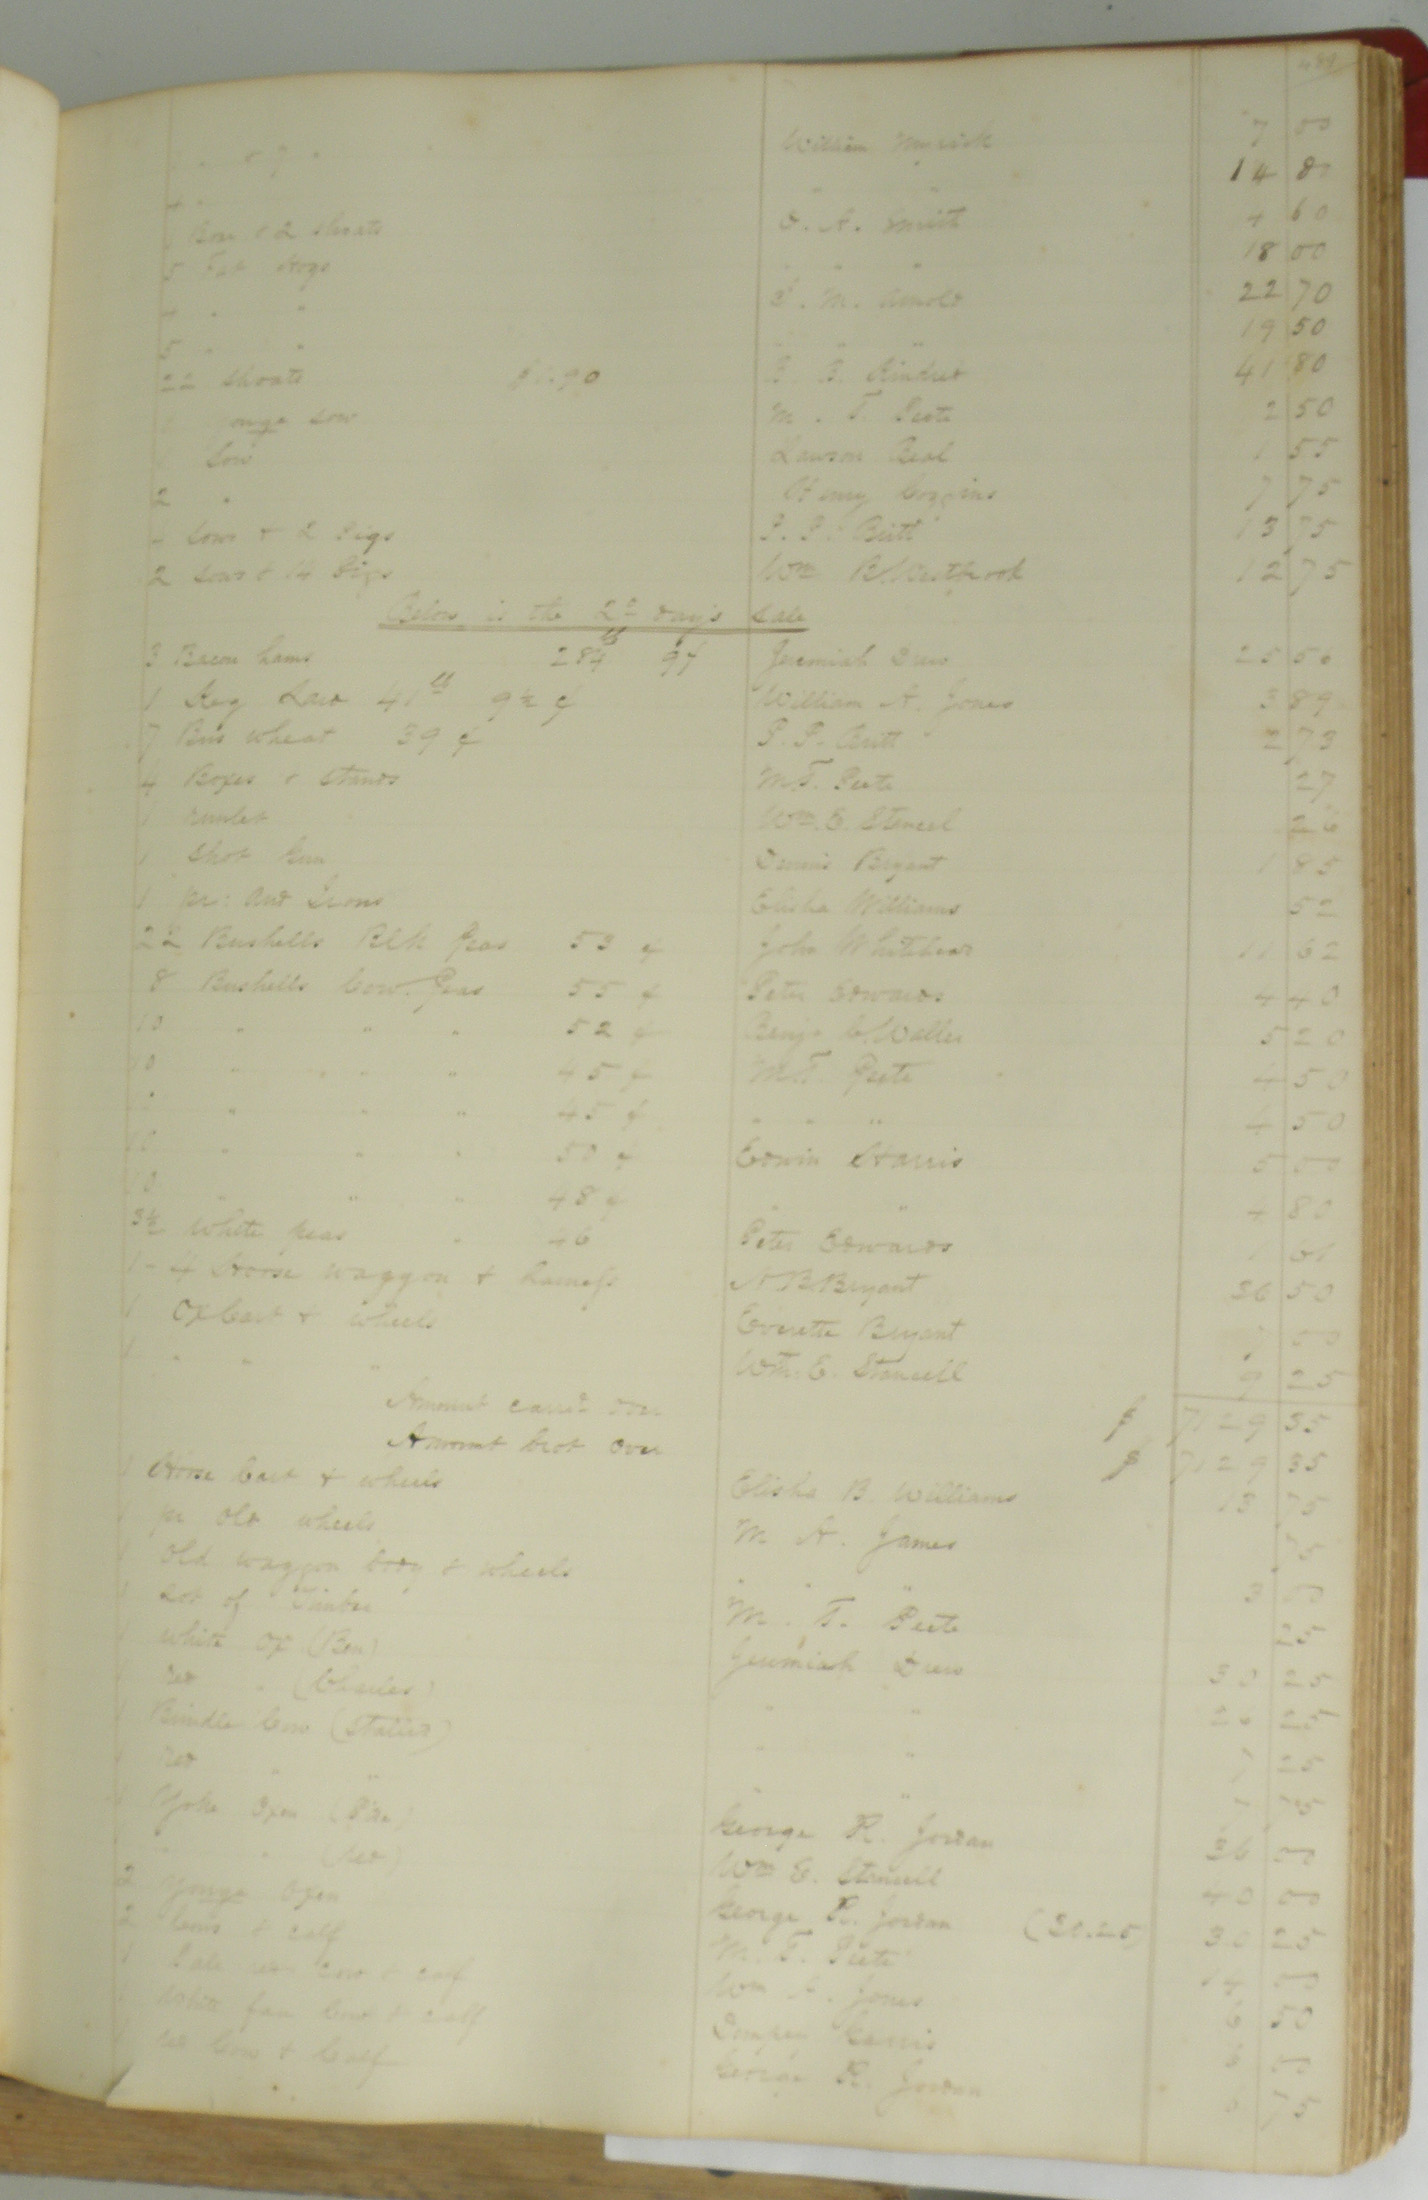 489
" " & 7 " William Myrick 7 00
4 " " " 14 80
1 Sow & 2 Shoats O. A. Smith 4 60
5 Fat Hogs " " " 18 00
4 " " J. M. Arnold 22 70
5 " " " " " 19 50
22 Shoats $1.90 J. B. Kindred 41 80
1 Sow M. T. Peete 2 50
1 Sow Lawson Beal 1 55
2 " Henry Coggins 7 75
4 Sows & 2 Pigs P. P. Britt 13 75
2 Sows & 14 Pigs Wm B. Westbrook 12 75
Below is the 2d day's Sale
3 Bacon hams 284 lb 9¢ Jeremiah Drew 25 56
1 Keg Lard 41 lb 9½ ¢ William A. Jones 3 89
7 Bus wheat 39 ¢ P. P. Britt 2 73
4 Boxes & Stands M. T. Peete 27
1 runlet Wm. E. Stancel 26
1 Shot Gun Dennis Bryant 1 85
1 pr: And Irons Elisha Williams 52
22 Bushells Blk Peas 53 ¢ John Whitehead 11 62
8 Bushells Cow Peas 55 ¢ Peter Edwards 4 40
10 " " " 52 ¢ Benj. C. Waller 5 20
10 " " " 45 ¢ M. T. Peete 4 50
" " " 45 ¢ " " " 4 50
10 " " " 50 ¢ Edwin Harris 5 00
10 " " " 48 ¢ " " 4 80
3½ White peas " 46 Peter Edwards 1 61
1 - 4 Horse waggon & harness N. B. Bryant 36 50
1 Ox Cart & wheels Everette Bryant 00
1 " " " Wm. E. Stancell 9 25
Amount carrd over $ 7129 35
Amount brot over $ 7129 35
1 Horse Cart & wheels Elisha B. Williams 13 75
1 pr old wheels M. A. James
1 Old waggon body & wheels " " " 3 00
1 Lot of Timber M. T. Peete 25
1 White Ox (Ben) Jeremiah Drew 30 25
1 red " (Charles) " " 26 25
1 Brindle Cow (Stalled) " " 7 25
1 red " " " " 7 75
1 Yoke Oxen George R. Jordan 36 00
" " (red) Wm E. Stancell 40 00
2 Young Oxen George R. Jordan (30.25) 30 25
2 Cows & calf M. T. Peete 14 00
1 red Cow & calf Wm A. Jones 6 50
1 White face Cow & calf Dempsey Harris 6 00
1 red Cow & Calf George R. Jordan 75